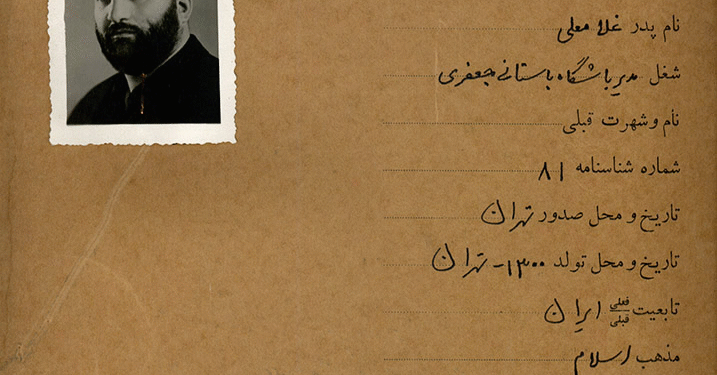 نام پدر غلامعلی
شغل مدیر باشگاه باستانی جعفری
نام و شهرت قبلی
شماره شناسنامه ۸۱
تاریخ و محل صدور تهران
تاریخ و محل تولد ۱۳۰۰ - تهران
تابعیت فعلی قبلی ایران
مذهب اسلام